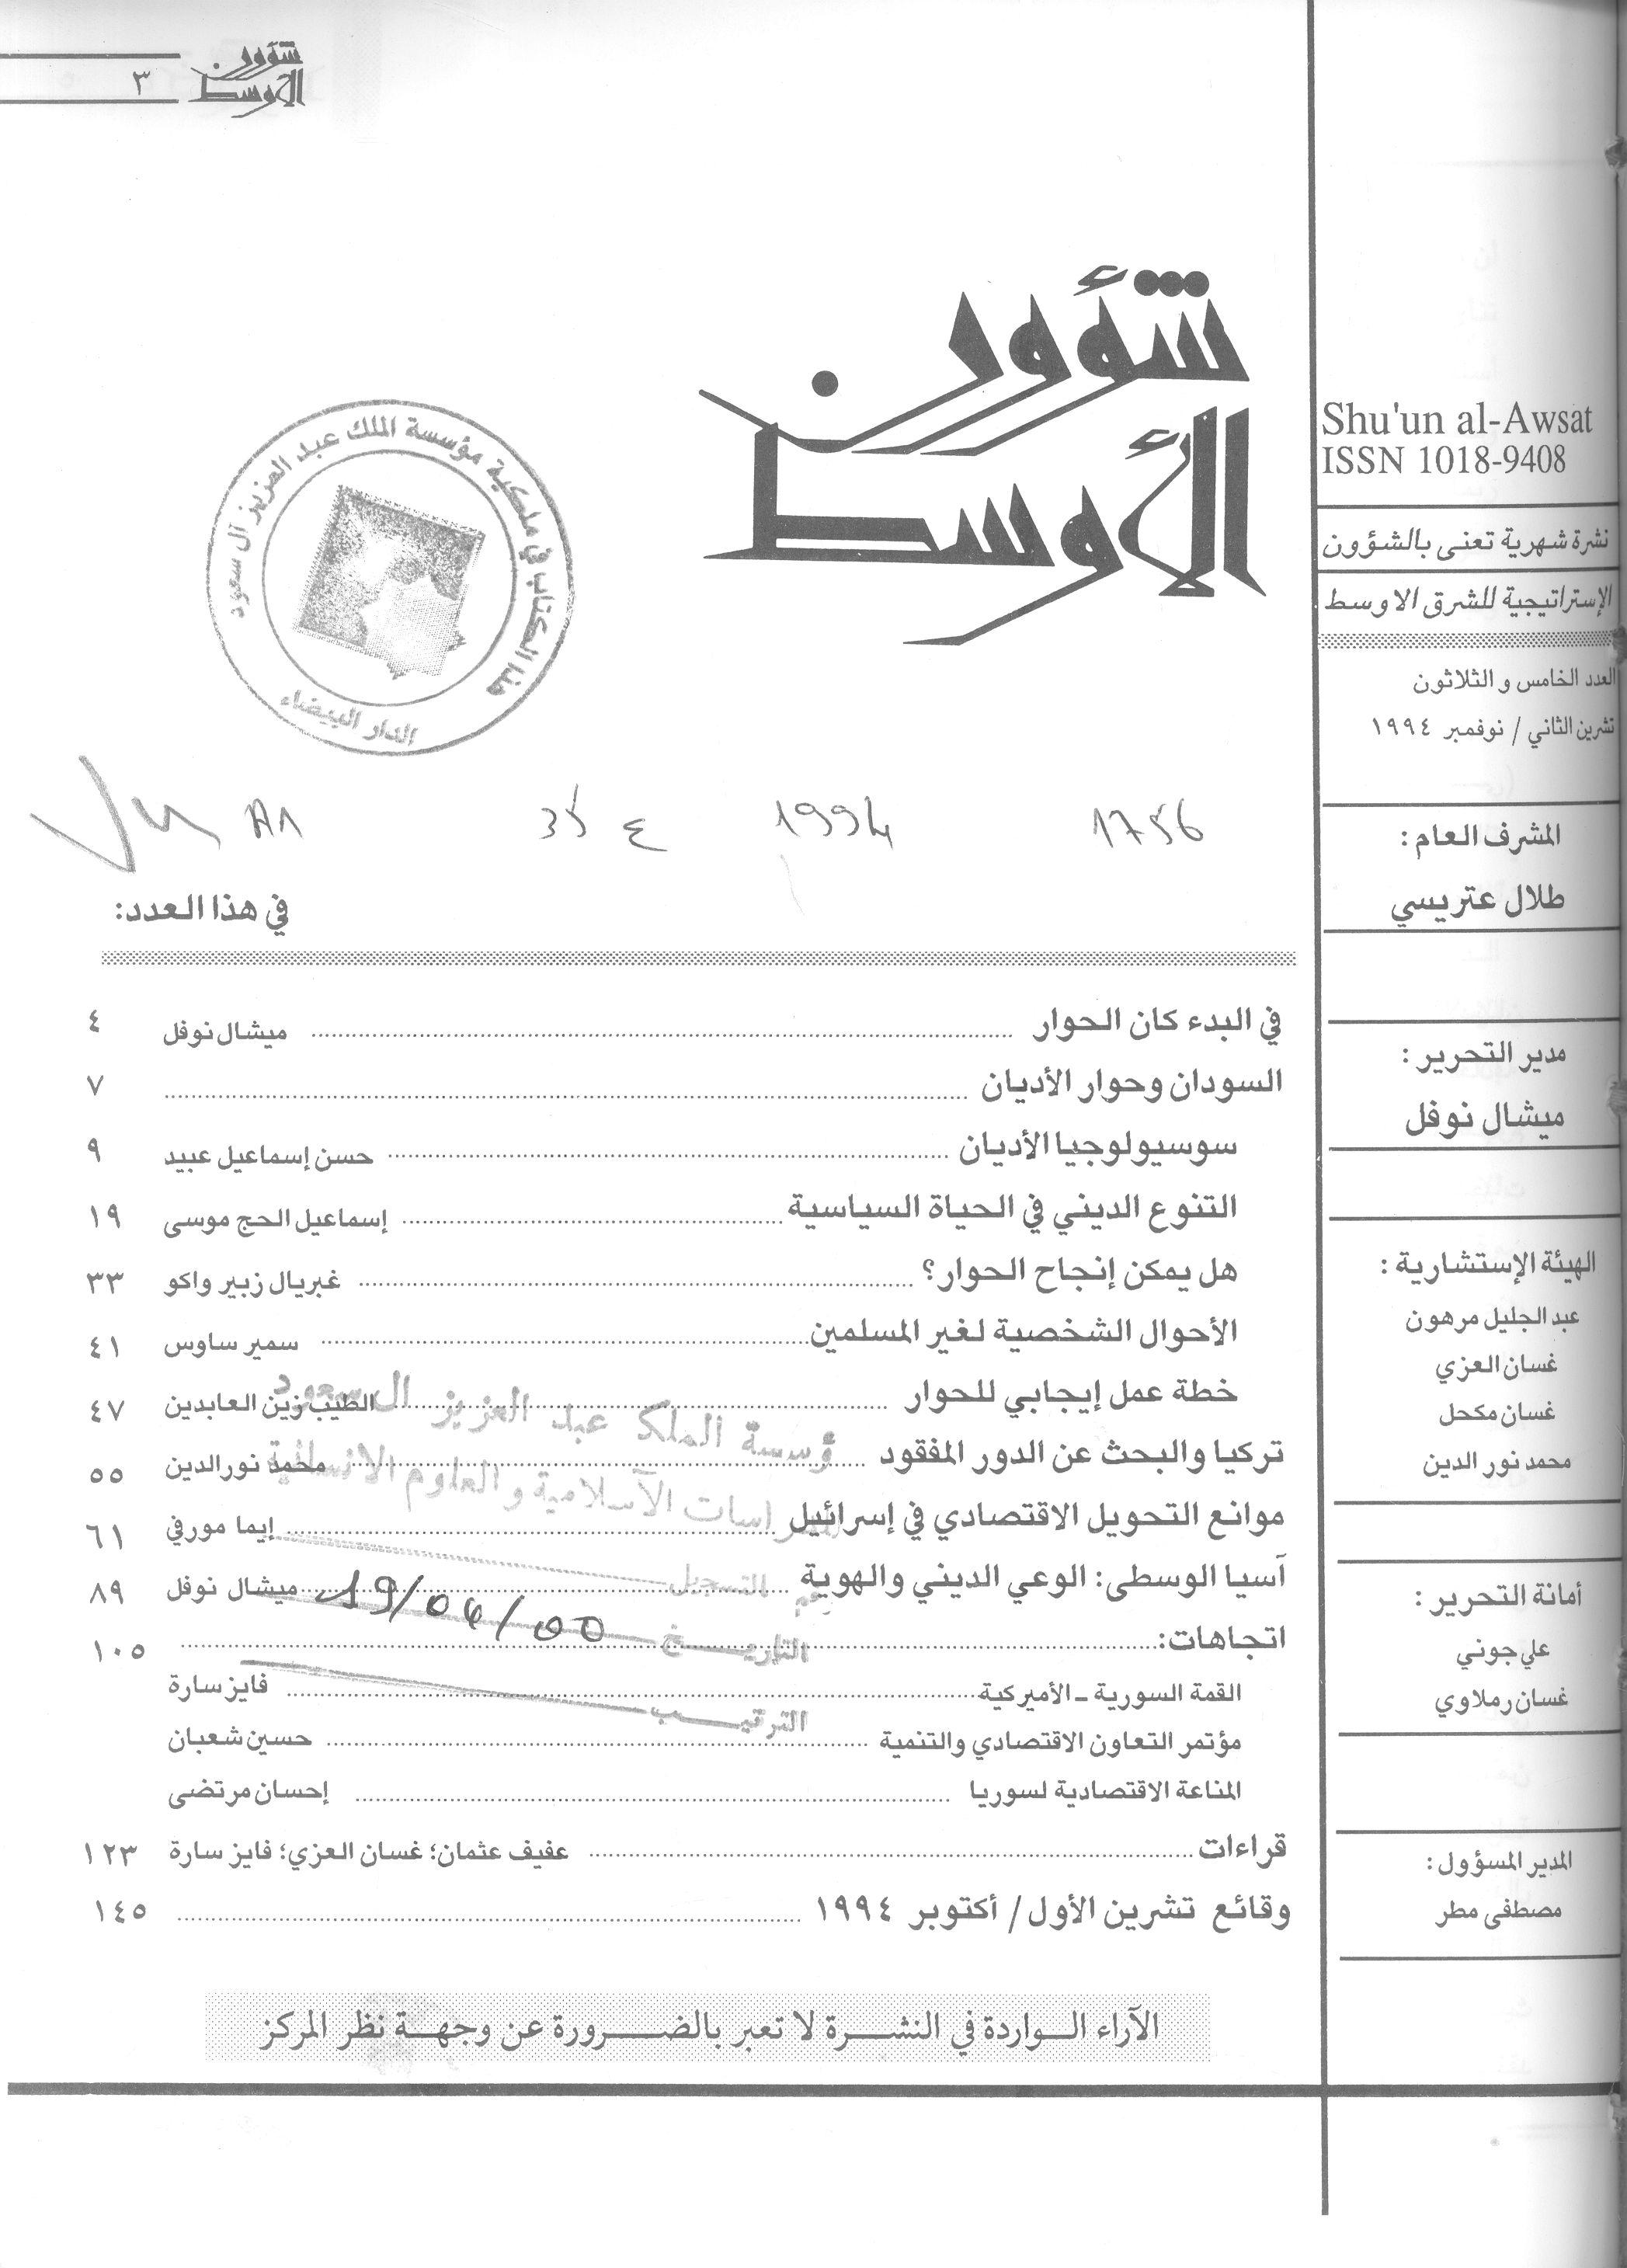 شؤون
الأوسط
٣
شؤون
الأوسط
Shu'un al-Awsat
ISSN 1018-9408
نشرة شهرية تعنى بالشؤون
الإستراتيجية للشرق الاوسط
العدد الخامس والثلاثون
تشرين الثاني / نوفمبر ١٩٩٤
المشرف العام :
طلال عتريسي
مدير التحرير :
ميشال نوفل
الهيئة الإستشارية :
عبد الجليل مرهون
غسان العزي
غسان مكحل
محمد نور الدين
أمانة التحرير :
علي جوني
غسان رملاوي
المدير المسؤول :
مصطفى مطر
هذا الكتاب في ملكية مؤسسة الملك عبد العزيز ال سعود
الدار البيضاء
1756 1994
في هذا العدد:
في البدء كان الحوار ........ ميشال نوفل ٤
السودان وحوار الأديان ........ ٧
سوسيولوجيا الأديان ........ حسن إسماعيل عبيد ٩
التنوع الديني في الحياة السياسية ........ إسماعيل الحج موسى ١٩
هل يمكن إنجاح الحوار؟ ........ غبريال زبير واكو ٣٣
الأحوال الشخصية لغير المسلمين ........ سمير ساوس ٤١
خطة عمل إيجابي للحوار ........ الطيب زين العابدين ٤٧
تركيا والبحث عن الدور المفقود ........ محمد نور الدين ٥٥
موانع التحويل الاقتصادي في إسرائيل ........ إيما مورفي ٦١
آسيا الوسطى: الوعي الديني والهوية ........ ميشال نوفل ٨٩
اتجاهات: ........ ١٠٥
القمة السورية ـ الأميركية ........ فايز سارة
مؤتمر التعاون الاقتصادي والتنمية ........ حسين شعبان
المناعة الاقتصادية لسوريا ........ إحسان مرتضى
قراءات ........ عفيف عثمان؛ غسان العزي؛ فايز سارة ١٢٣
وقائع تشرين الأول/ أكتوبر ١٩٩٤ ........ ١٤٥
ؤسسة الملك عبد العزيز ال سعود
راسات الآسلامية والعلوم الانسانية
التسجيل
التاريخ 19/04/00
الترتيب
الآراء الواردة في النشرة لا تعبر بالضرورة عن وجهة نظر المركز